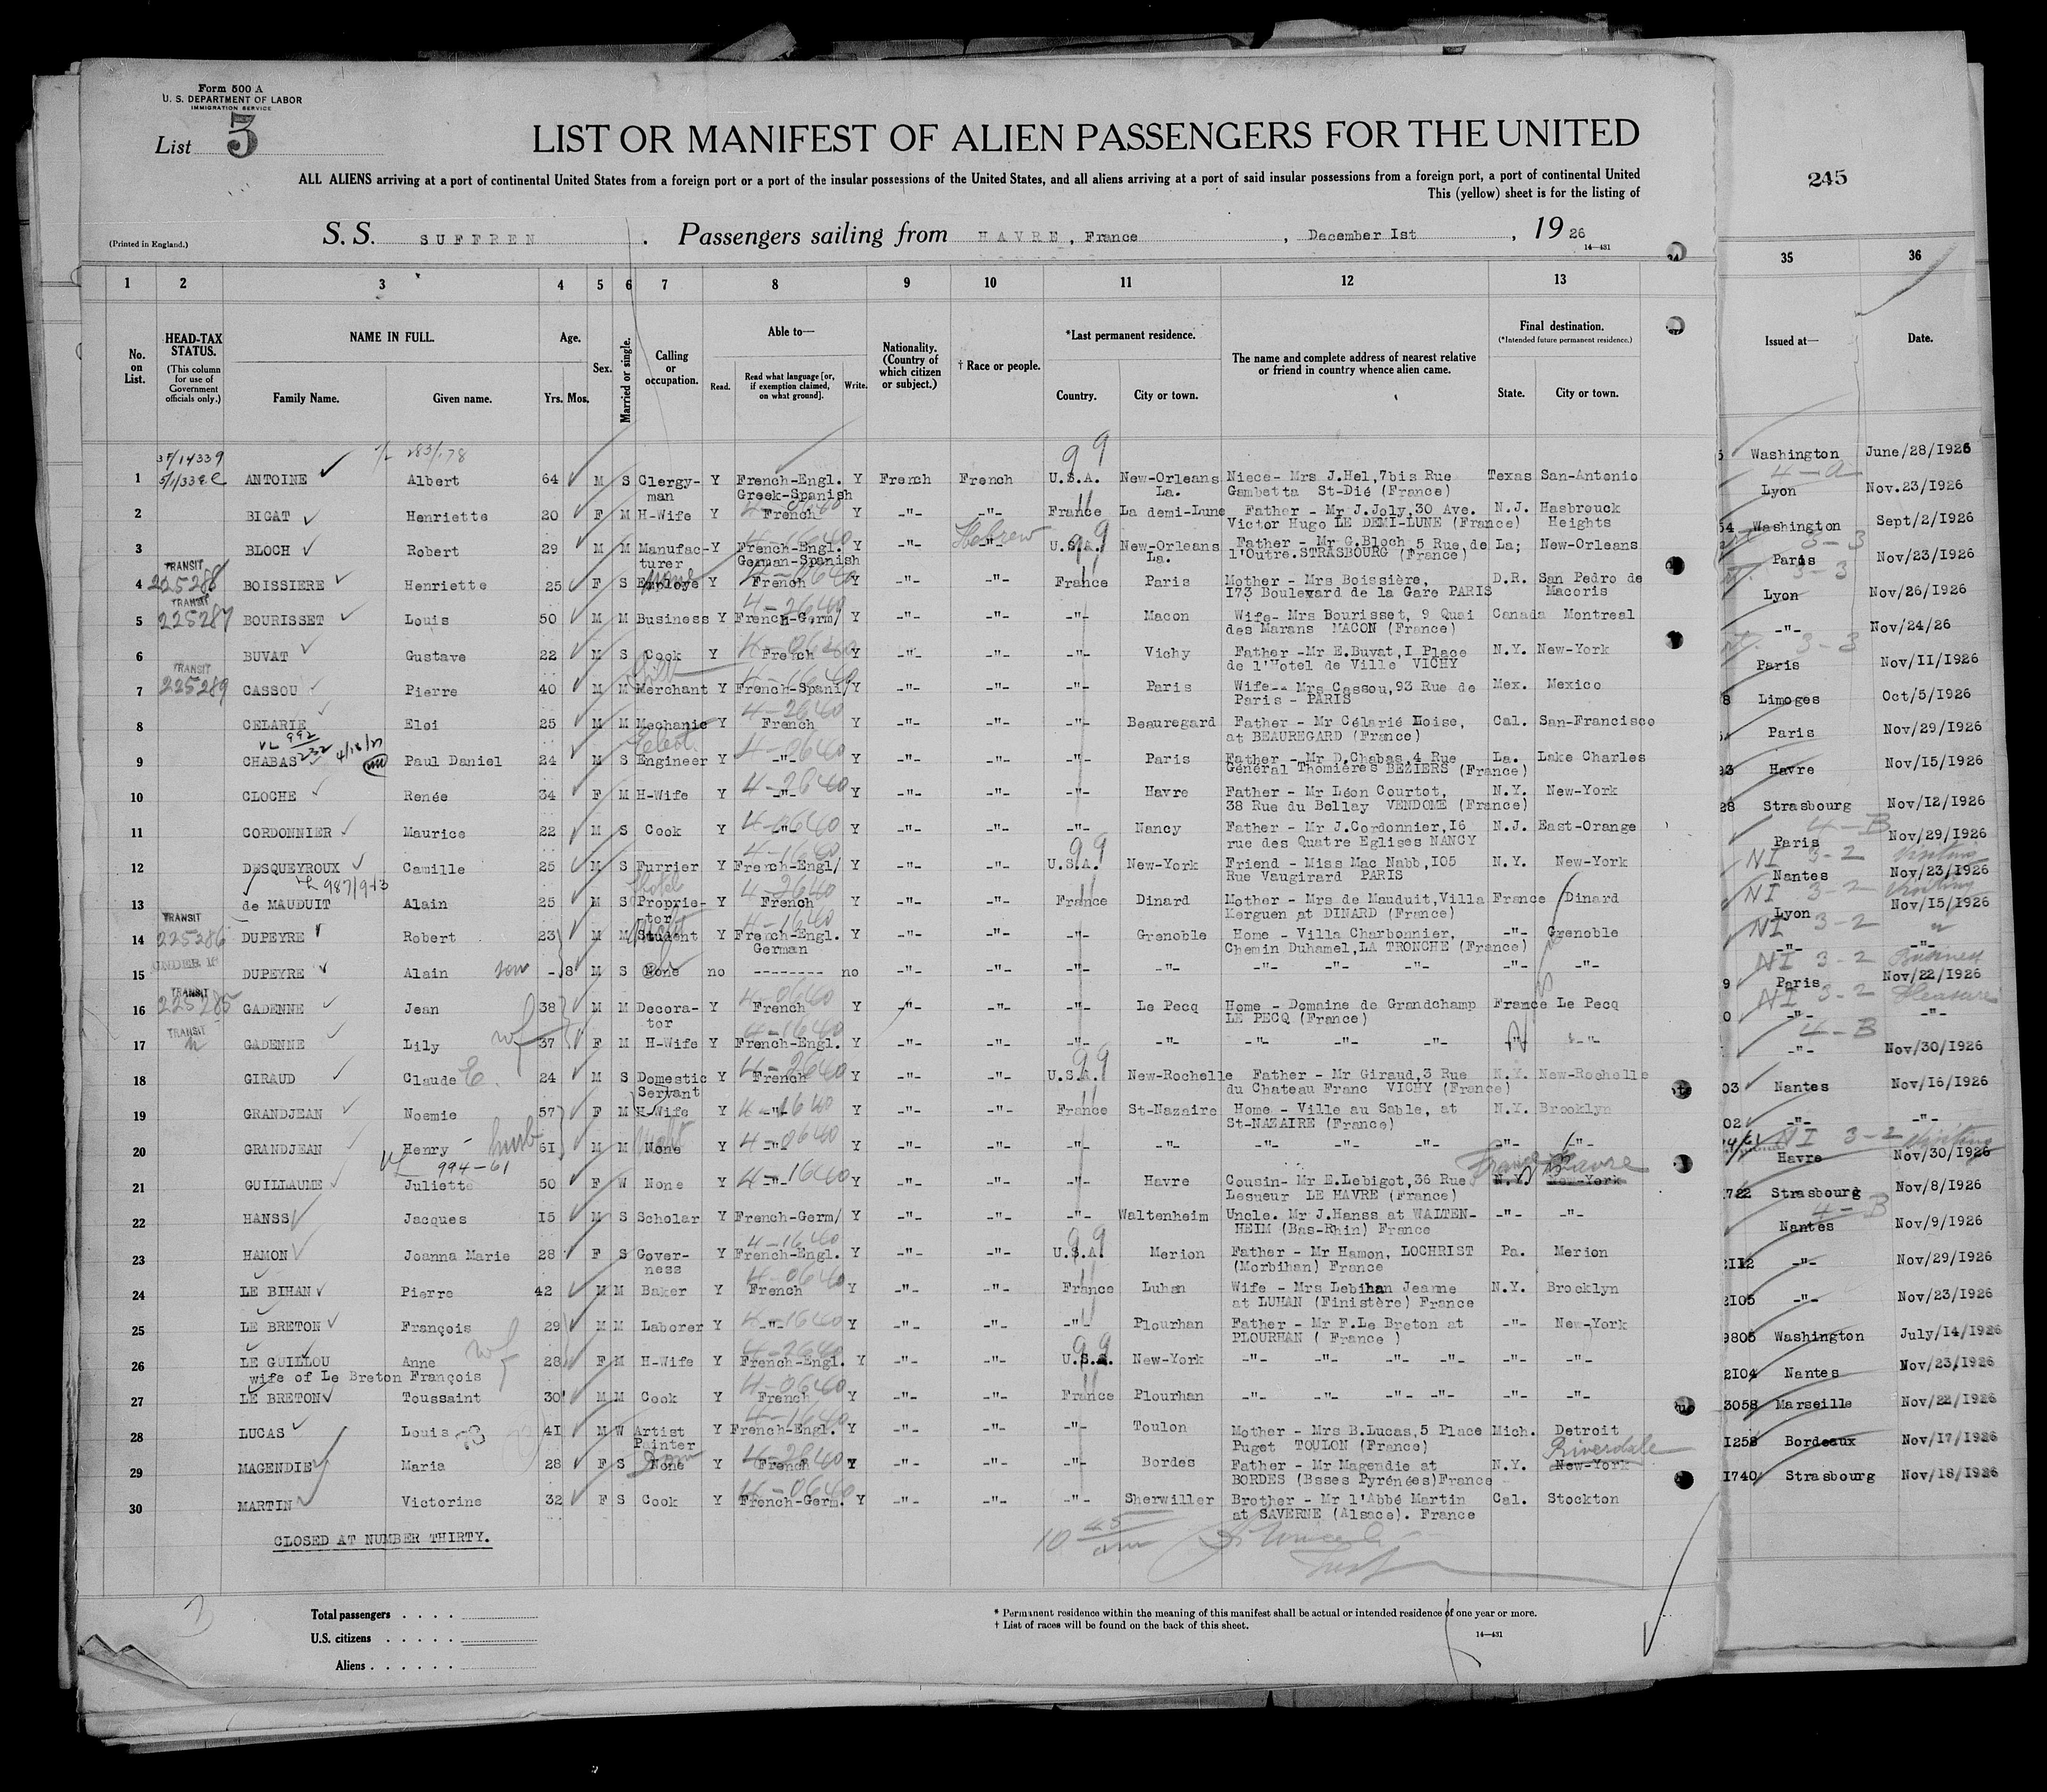 Form 500 A
U. S. DEPARTMENT OF LABOR
IMMIGRATION SERVICE
List 5
LIST OR MANIFEST OF ALIEN PASSENGERS FOR THE UNITED
ALL ALIENS arriving at a port of continental United States from a foreign port or a port of the insular possessions of the United States, and all aliens arriving at a port of said insular possessions from a foreign port, a port of continental United
This (yellow) sheet is for the listing of
245
(Printed in England.)
S. S. SUFFREN . Passengers sailing from HAVRE, France , December 1st , 19 26
14—431
1 2 3 4 5 6 7 8 9 10 11 12 13 35 36
No. on List.
HEAD-TAX STATUS.
(This column for use of Government officials only.)
NAME IN FULL.
Family Name. Given name.
Age.
Yrs. Mos.
Sex.
Married or single.
Calling or occupation.
Able to—
Read. Read what language [or, if exemption claimed, on what ground]. Write.
Nationality. (Country of which citizen or subject.)
† Race or people.
*Last permanent residence.
Country. City or town.
The name and complete address of nearest relative or friend in country whence alien came.
Final destination.
(*Intended future permanent residence.)
State. City or town.
Issued at— Date.
1 ANTOINE Albert 64 M S Clergy- Y French-Engl. Y French French U.S.A. New-Orleans Niece- Mrs J.Hel,7bis Rue Texas San-Antonio Washington June/28/1926
man Greek-Spanish La. Gambetta St-Dié (France)
2 BIGAT Henriette 20 F M H-Wife Y French Y -"- -"- France La demi-Lune Father - Mr J.Joly,30 Ave. N.J. Hasbrouck Lyon Nov.23/1926
Victor Hugo LE DEMI-LUNE (France) Heights
Hebrew
3 BLOCH Robert 29 M M Manufac- Y French-Engl. Y -"- -"- U.S.A. New-Orleans Father - Mr G.Bloch 5 Rue de La; New-Orleans Washington Sept/2/1926
turer German-Spanish La. l'Outre.STRASBOURG (France)
TRANSIT 225288
4 BOISSIERE Henriette 25 F S Employe Y French Y -"- -"- France Paris Mother - Mrs Boissière, D.R. San Pedro de Paris Nov/23/1926
173 Boulevard de la Gare PARIS Macoris
TRANSIT 225287
5 BOURISSET Louis 50 M M Business Y French-Germ/ Y -"- -"- -"- Macon Wife- Mrs Bourisset, 9 Quai Canada Montreal Lyon Nov/26/1926
des Marans MACON (France)
6 BUVAT Gustave 22 M S Cook Y French Y -"- -"- -"- Vichy Father -Mr E.Buvat,I Place N.Y. New-York -"- Nov/24/26
de l'Hotel de Ville VICHY
TRANSIT 225289
7 CASSOU Pierre 40 M M Merchant Y French-Spani/ Y -"- -"- -"- Paris Wife-- Mrs Cassou,93 Rue de Mex. Mexico Paris Nov/II/1926
Paris - PARIS
8 CELARIE Eloi 25 M M Mechanic Y French Y -"- -"- -"- Beauregard Father - Mr Célarié Moise, Cal. San-Francisco Limoges Oct/5/1926
at BEAUREGARD (France)
9 CHABAS Paul Daniel 24 M S Engineer Y -"- Y -"- -"- -"- Paris Father - Mr D.Chabas,4 Rue La. Lake Charles Paris Nov/29/1926
General Thomières BEZIERS (France)
10 CLOCHE Renée 34 F M H-Wife Y -"- Y -"- -"- -"- Havre Father - Mr Léon Courtot, N.Y. New-York Havre Nov/15/1926
38 Rue du Bellay VENDOME (France)
11 CORDONNIER Maurice 22 M S Cook Y -"- Y -"- -"- -"- Nancy Father - Mr J.Cordonnier,I6 N.J. East-Orange Strasbourg Nov/12/1926
rue des Quatre Eglises NANCY
12 DESQUEYROUX Camille 25 M S Furrier Y French-Engl/ Y -"- -"- U.S.A. New-York Friend - Miss Mac Nabb,I05 N.Y. New-York Paris Nov/29/1926
Rue Vaugirard PARIS
13 de MAUDUIT Alain 25 M S Proprie- Y French Y -"- -"- France Dinard Mother - Mrs de Mauduit,Villa France Dinard Nantes Nov/23/1926
tor Kerguen at DINARD (France)
TRANSIT 225286
14 DUPEYRE Robert 23 M M Student Y French-Engl. Y -"- -"- -"- Grenoble Home - Villa Charbonnier, -"- Grenoble Lyon Nov/15/1926
German Chemin Duhamel,LA TRONCHE (France)
15 DUPEYRE Alain son - 8 M S None no -------- no -"- -"- -"- -"- -"- -"- -"- -"- -"- -"- -"-
TRANSIT 225285
16 GADENNE Jean 38 M M Decora- Y French Y -"- -"- -"- Le Pecq Home - Domaine de Grandchamp France Le Pecq Paris Nov/22/1926
tor LE PECQ (France)
TRANSIT
17 GADENNE Lily wf 37 F M H-Wife Y French-Engl. Y -"- -"- -"- -"- -"- -"- -"- -"- -"- -"-
18 GIRAUD Claude E. 24 M S Domestic Y French Y -"- -"- U.S.A. New-Rochelle Father - Mr Giraud,3 Rue N.Y. New-Rochelle -"- Nov/30/1926
Servant du Chateau Franc VICHY (France)
19 GRANDJEAN Noemie 57 F M H-Wife Y -"- Y -"- -"- France St-Nazaire Home - Ville au Sable, at N.Y. Brooklyn Nantes Nov/16/1926
St-NAZAIRE (France)
20 GRANDJEAN Henry husb 61 M M None Y -"- Y -"- -"- -"- -"- -"- -"- -"- -"- -"- -"- -"- -"-
994-61
21 GUILLAUME Juliette 50 F W None Y -"- Y -"- -"- -"- Havre Cousin- Mr E.Lebigot,36 Rue N.Y. New-York France Havre Havre Nov/30/1926
Lesueur LE HAVRE (France)
22 HANSS Jacques I5 M S Scholar Y French-Germ/ Y -"- -"- -"- Waltenheim Uncle. Mr J.Hanss at WALTEN- -"- -"- Strasbourg Nov/8/1926
HEIM (Bas-Rhin) France
23 HAMON Joanna Marie 28 F S Gover- Y French-Engl. Y -"- -"- U.S.A. Merion Father - Mr Hamon, LOCHRIST Pa. Merion Nantes Nov/9/1926
ness (Morbihan) France
24 LE BIHAN Pierre 42 M M Baker Y French Y -"- -"- France Luhan Wife - Mrs Lebihan Jeanne N.Y. Brooklyn -"- Nov/29/1926
at LUHAN (Finistère) France
25 LE BRETON François 29 M M Laborer Y -"- Y -"- -"- -"- Plourhan Father - Mr F.Le Breton at -"- New-York -"- Nov/23/1926
PLOURHAN ( France )
26 LE GUILLOU Anne wf 28 F M H-Wife Y French-Engl. Y -"- -"- U.S.A. New-York -"- -"- -"- -"- -"- -"- 9805 Washington July/14/1926
wife of Le Breton François
27 LE BRETON Toussaint 30 M M Cook Y French Y -"- -"- France Plourhan -"- -"- -"- -"- -"- -"- 2104 Nantes Nov/23/1926
28 LUCAS Louis 41 M W Artist Y French-Engl. Y -"- -"- -"- Toulon Mother - Mrs B.Lucas,5 Place Mich. Detroit 3058 Marseille Nov/22/1926
Painter Puget TOULON (France)
Riverdale
29 MAGENDIE Maria 28 F S None Y French Y -"- -"- -"- Bordes Father - Mr Magendie at N.Y. New-York Bordeaux Nov/17/1926
BORDES (Bsses Pyrénées)France
30 MARTIN Victorine 32 F S Cook Y French-Germ. Y -"- -"- -"- Sherwiller Brother - Mr l'Abbé Martin Cal. Stockton 1740 Strasbourg Nov/18/1926
at SAVERNE (Alsace). France
CLOSED AT NUMBER THIRTY.
Total passengers . . . .
U.S. citizens . . . . .
Aliens . . . . . .
* Permanent residence within the meaning of this manifest shall be actual or intended residence of one year or more.
† List of races will be found on the back of this sheet.
14—431